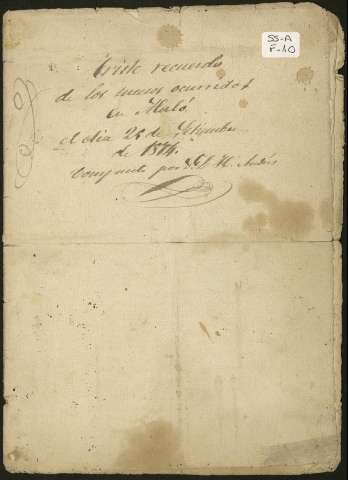 SS-A
F-10
Triste recuerdo
de los sucesos ocurridos
en Haló
el dia 26 de Setiembre
de 1874.
Compuesto por